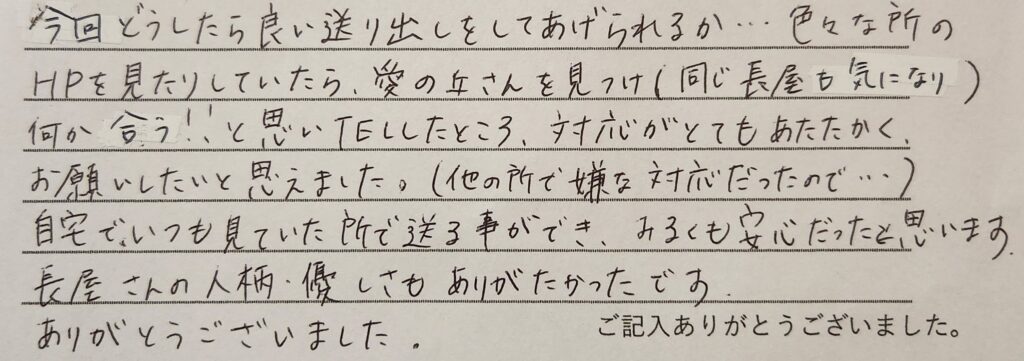 今回どうしたら良い送り出しをしてあげられるか… 色々な所の
HPを見たりしていたら、愛の丘さんを見つけ(同じ長屋も気になり)
何か合う!!と思いTELしたところ、対応がとてもあたたかく、
お願いしたいと思えました。(他の所で嫌な対応だったので…)
自宅で、いつも見ていた所で送る事ができ、みるくも安心だったと思います。
長屋さんの人柄・優しさもありがたかったです.
ありがとうございました. ご記入ありがとうございました。